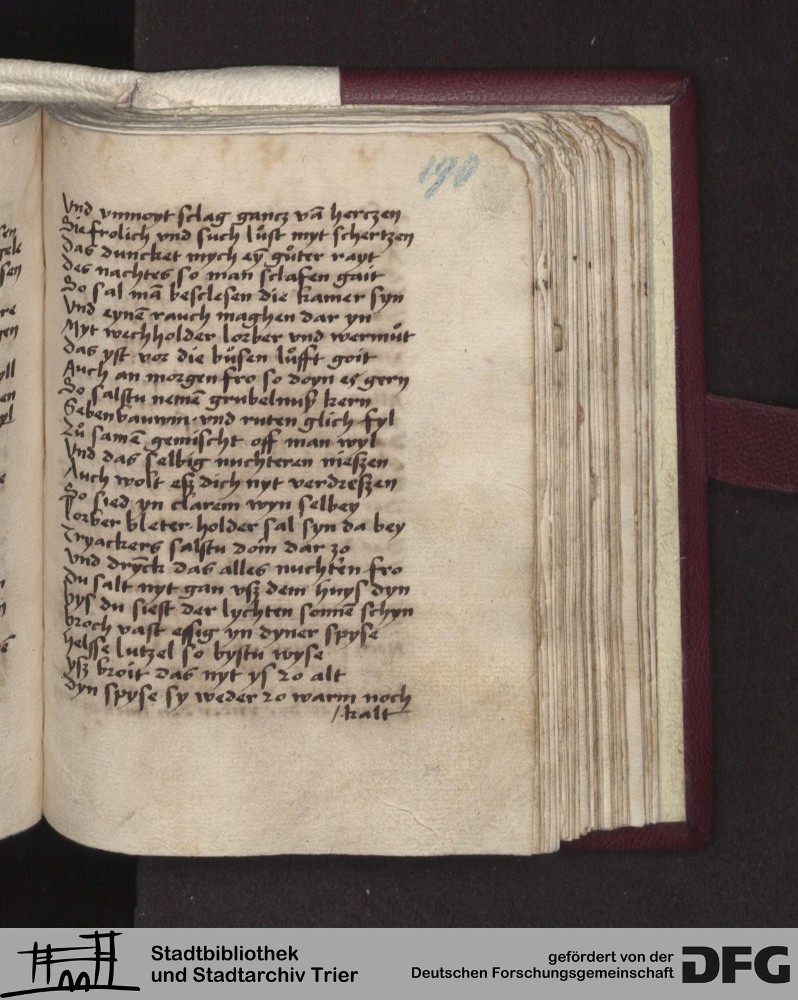 190
Vnd vnmoyt sclag gancz vā herczen
Sie frolich vnd such lůst myt schertzen
Das duncket mych eȳ gůter rayt
Des nachtes so man sclafen gait
So sal mā besclesen die kamer syn
Vnd eynē rauch maghen dar yn
Myt wechholder lorber vnd wermůt
Das yst vor die bůsen lůfft goit
Auch an morgen fro so doyn eß gern
So salstu nemē grubelnuß kern
Sebenbauwm vnd ruten glich fyl
Zů samē gemischt off man wyl
Vnd das selbig nuchteren nießen
Auch wolt eß dich nyt verdreßzen
So sied yn clarem wyn selbey
Lorber bleter holder sal syn da bey
Tryackers salstu doin dar zo
Vnd dryck das alles nuchten fro
Du salt nyt gan vß dem huys dyn
bys du siest der lychten sonnē schyn
broch vast essig yn dyner spyse
helsse lutzel so bystu wyse
yß broit das nyt ys zo alt
dyn spyse sy weder zo warm noch
/kalt
Stadtbibliothek
und Stadtarchiv Trier
gefördert von der
Deutschen Forschungsgemeinschaft
DFG